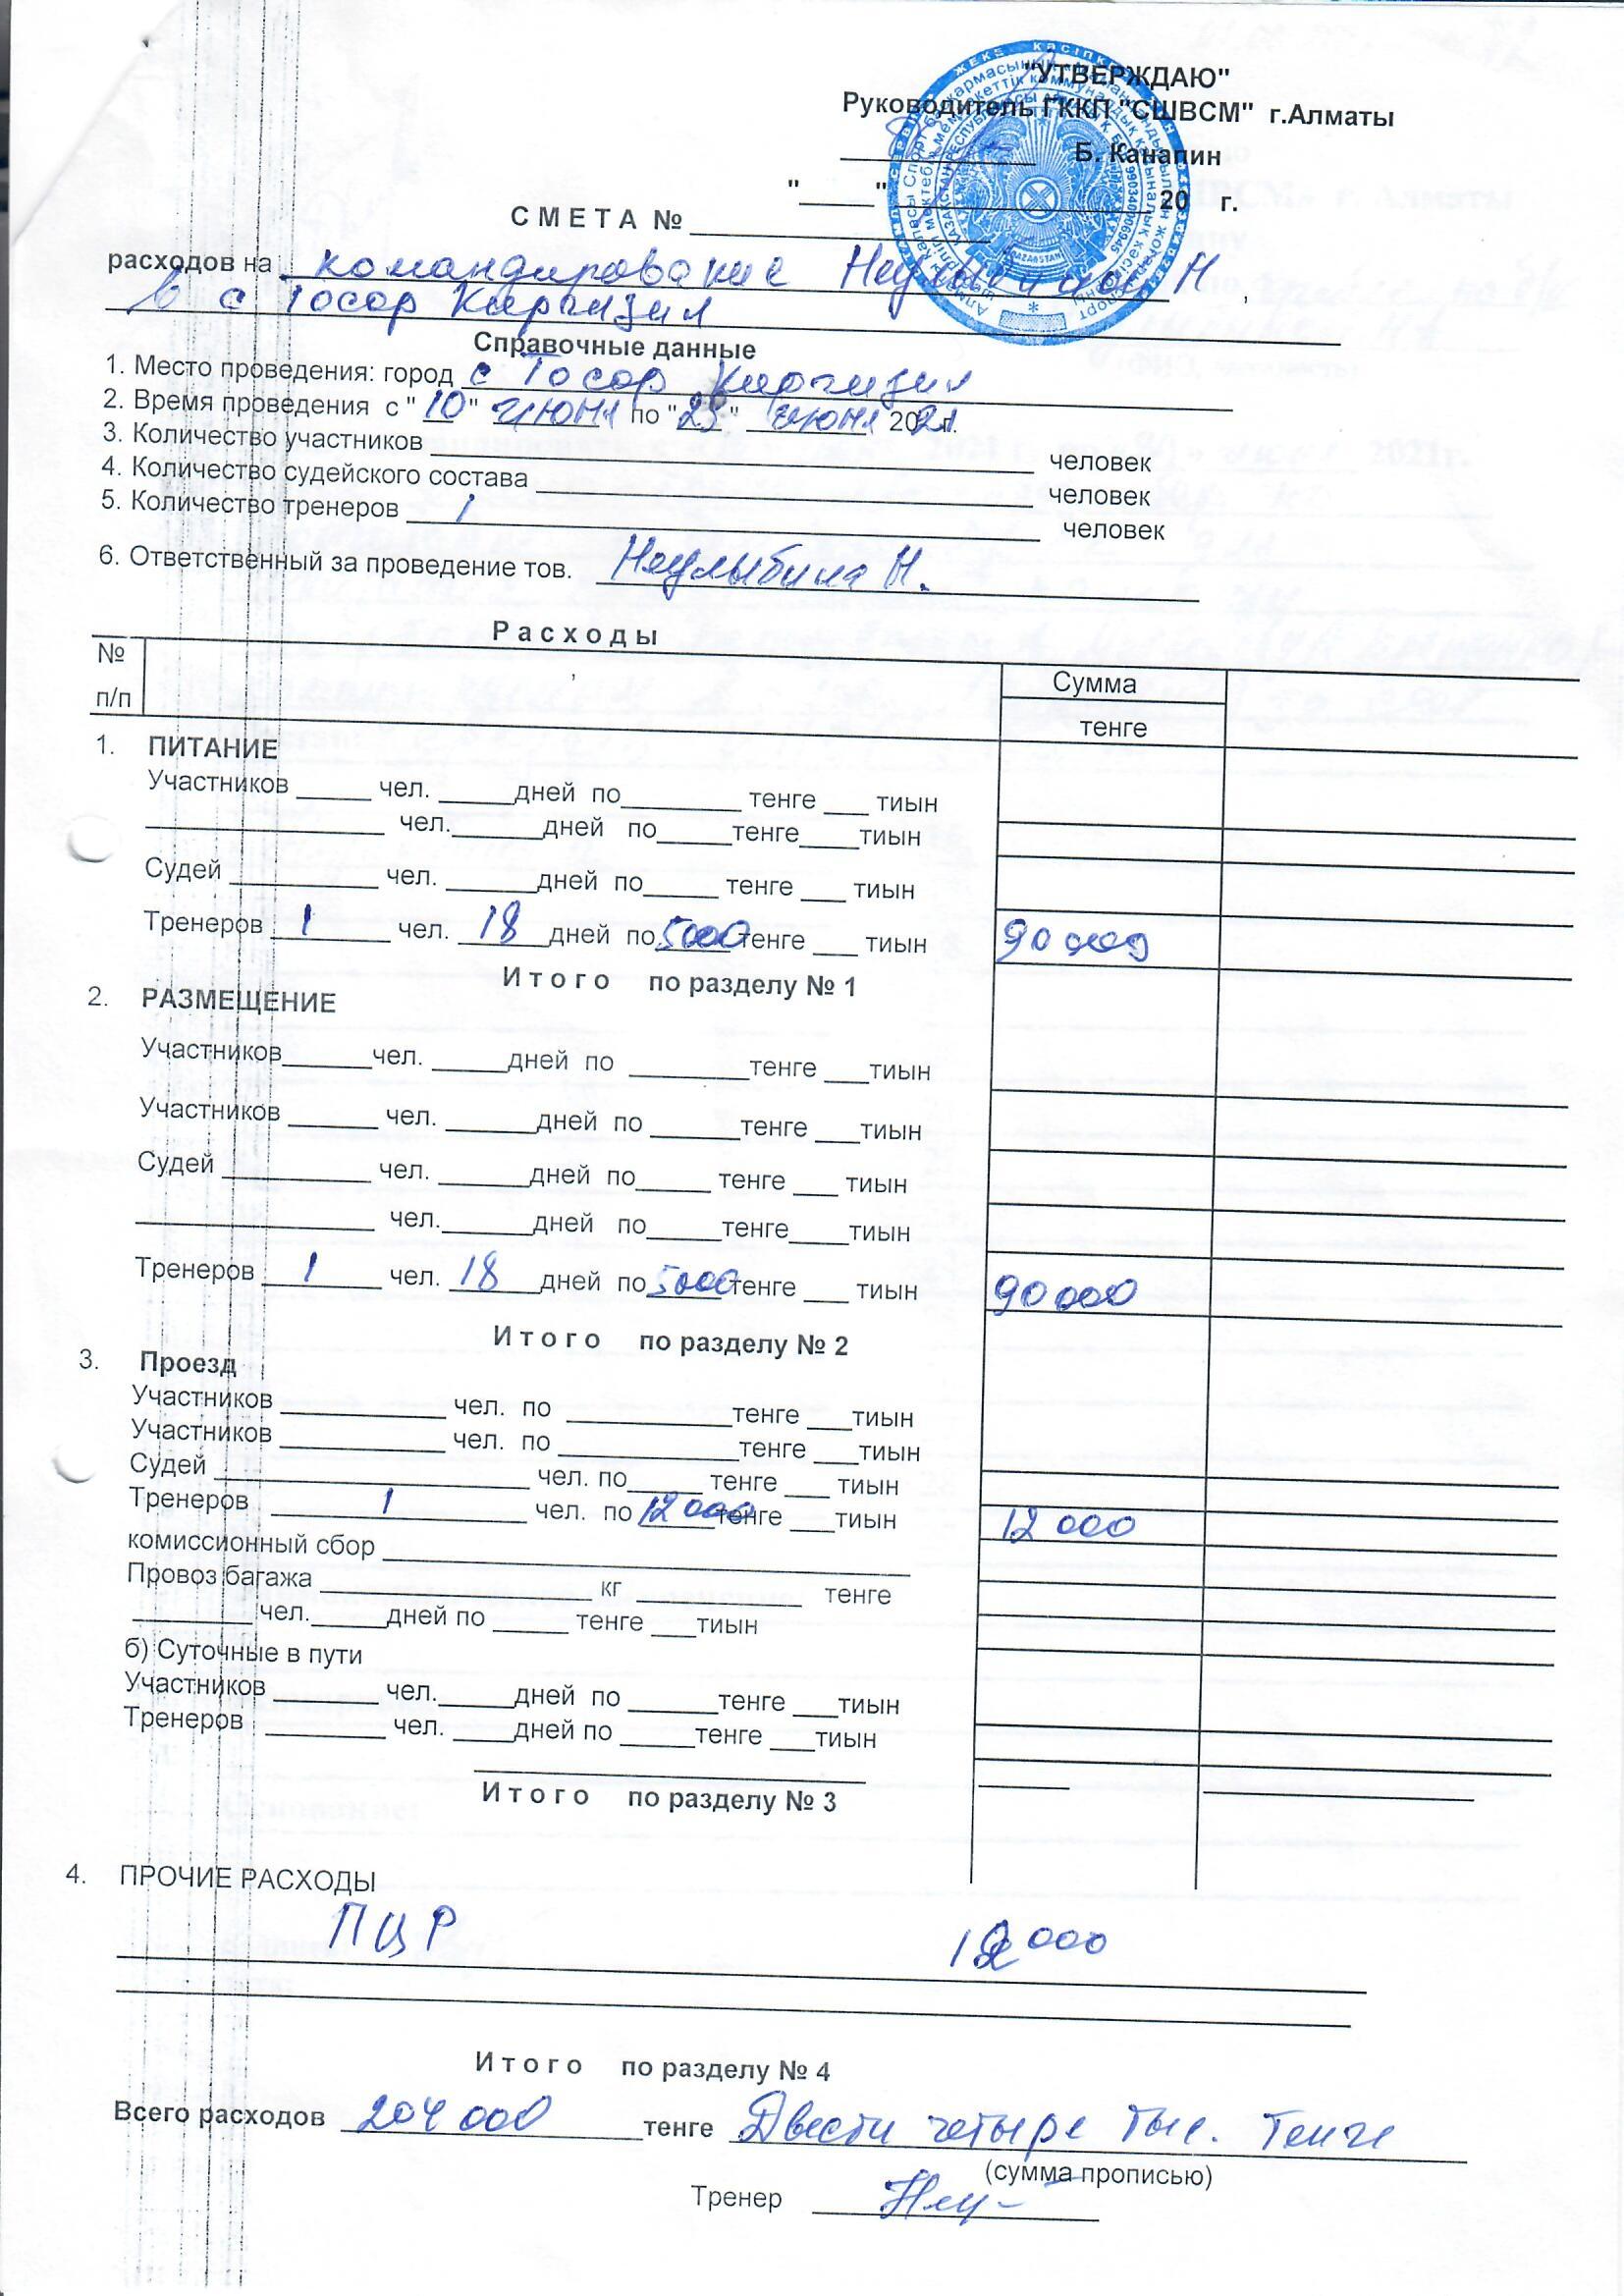 "УТВЕРЖДАЮ"
Руководитель ГККП "СШВСМ" г.Алматы
____________ Б. Канапин
"_____" ____________ 20 г.
С М Е Т А № ____________
расходов на командирование Неулыбиной Н ,
в с Тосор Киргизия
Справочные данные
1. Место проведения: город с Тосор Киргизия
2. Время проведения с "10" июня по "25" июня 2021г.
3. Количество участников ____________ человек
4. Количество судейского состава ____________ человек
5. Количество тренеров 1 человек
6. Ответственный за проведение тов. Неулыбина Н.
Р а с х о д ы
№ п/п Сумма
тенге
1. ПИТАНИЕ
Участников _____ чел. _____дней по________ тенге ___ тиын
________________ чел.______дней по_____тенге____тиын
Судей __________ чел. ______дней по_____ тенге ___ тиын
Тренеров 1 чел. 18 дней по 5000 тенге ___ тиын 90 000
И т о г о по разделу № 1
2. РАЗМЕЩЕНИЕ
Участников______чел. _____дней по ________тенге ___тиын
Участников ______ чел. ______дней по ______тенге ___тиын
Судей __________ чел. ______дней по_____ тенге ___ тиын
________________ чел.______дней по_____тенге____тиын
Тренеров 1 чел. 18 дней по 5000 тенге ___ тиын 90 000
И т о г о по разделу № 2
3. Проезд
Участников ___________ чел. по ___________тенге ___тиын
Участников ___________ чел. по ____________тенге ___тиын
Судей _____________________ чел. по_____ тенге ___ тиын
Тренеров 1 чел. по 12 000 тенге ___тиын 12 000
комиссионный сбор ____________
Провоз багажа __________________ кг ___________ тенге
________ чел._____дней по _____ тенге ___тиын
б) Суточные в пути
Участников _______ чел._____дней по ______тенге ___тиын
Тренеров ________ чел. ____дней по _____тенге ___тиын
И т о г о по разделу № 3
4. ПРОЧИЕ РАСХОДЫ
ПЦР 12 000
И т о г о по разделу № 4
Всего расходов 204 000 тенге Двести четыре тыс. тенге
(сумма прописью)
Тренер